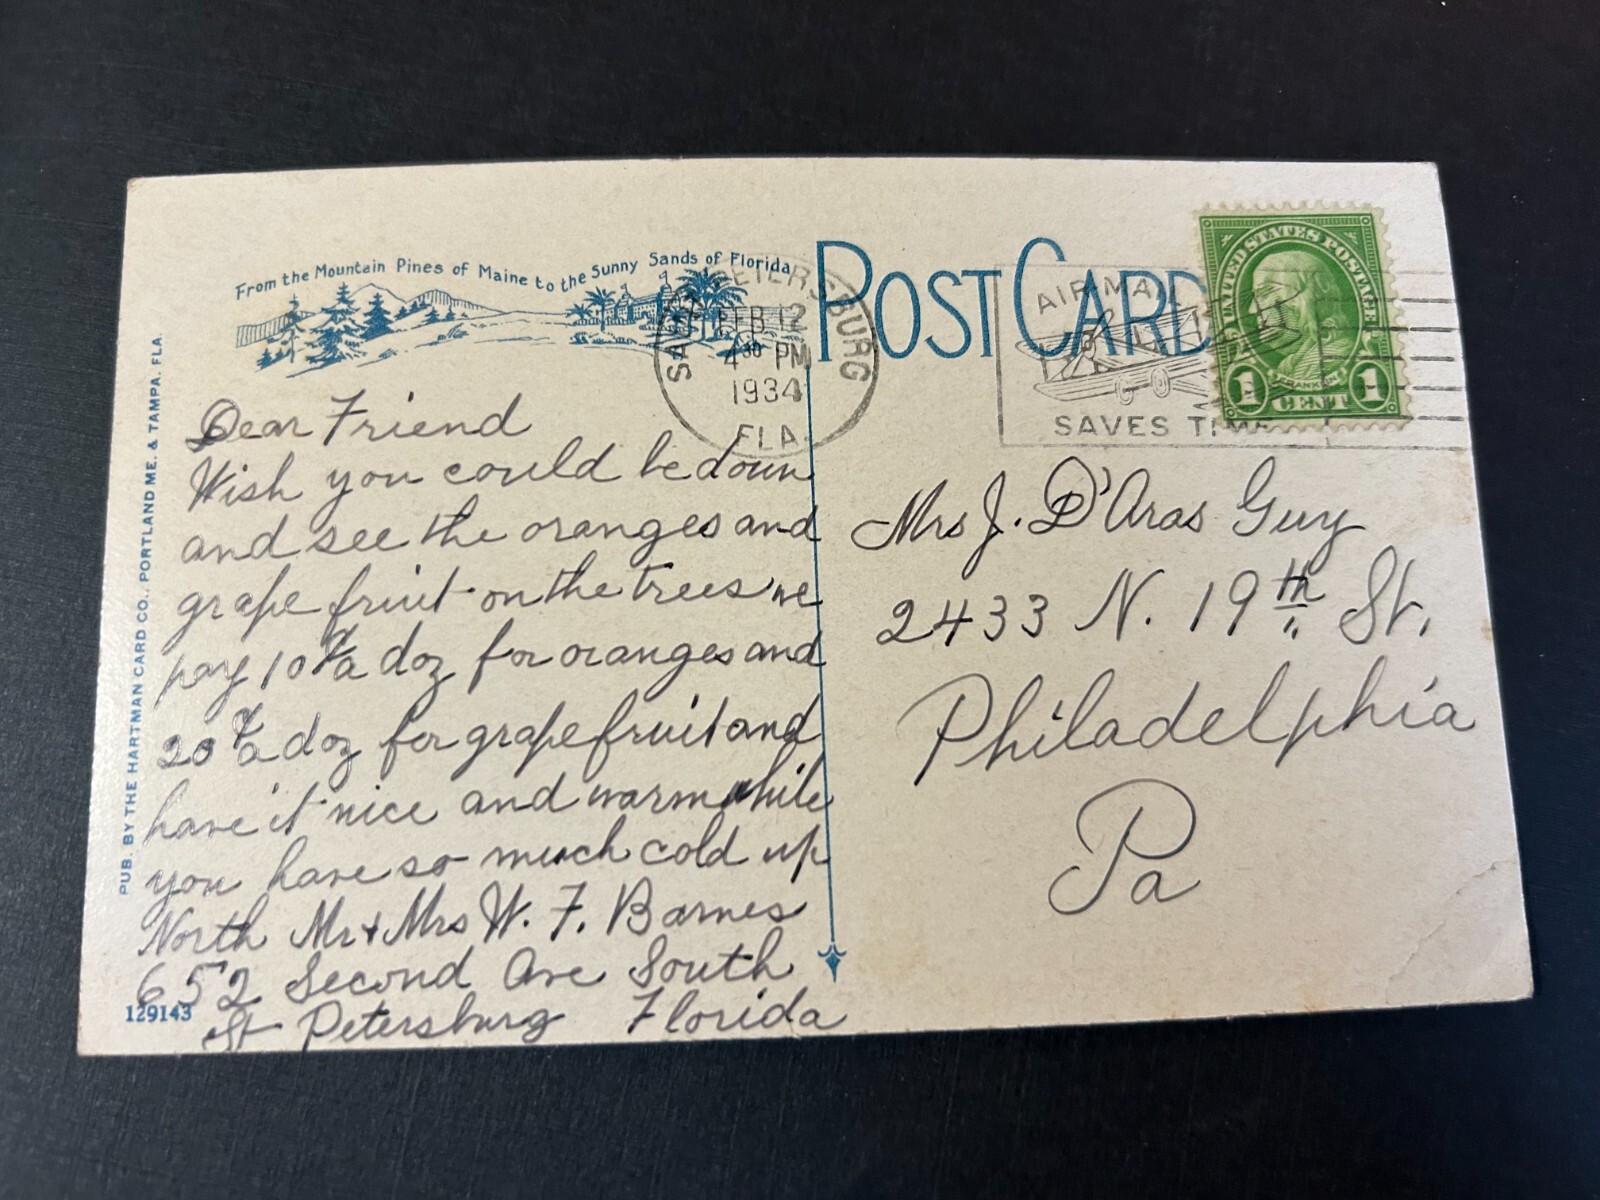 From the Mountain Pines of Maine to the Sunny Sands of Florida
POST CARD
SAINT PETERSBURG
FEB 12
4 30 PM
1934
FLA.
AIR MAIL
SAVES TIME
UNITED STATES POSTAGE
FRANKLIN
1 CENT 1
PUB. BY THE HARTMAN CARD CO., PORTLAND ME. & TAMPA, FLA.
Dear Friend
Wish you could be down
and see the oranges and
grape fruit on the trees we
pay 10¢ a doz for oranges and
20¢ a doz for grapefruit and
have it nice and warm while
you have so much cold up
North Mr & Mrs W. F. Barnes
652 Second Ave South
St Petersburg Florida
129143
Mrs J. D'Aras Guy
2433 N. 19th St.
Philadelphia
Pa